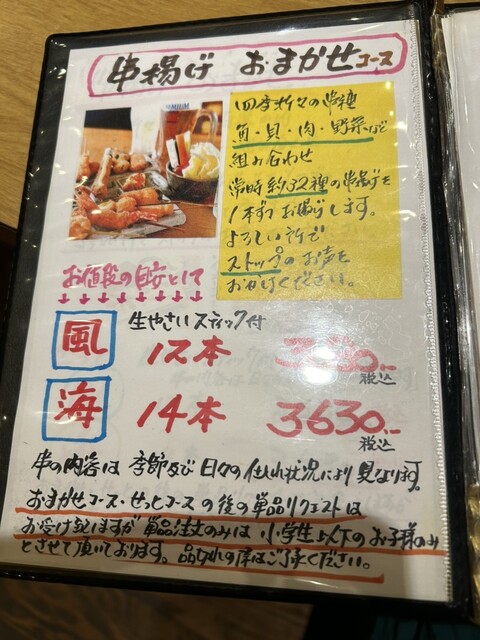 串揚げ おまかせコース
四季折々の串種
魚・貝・肉・野菜など
組み合わせ
常時約32種の串揚げを
1本ずつお揚げします。
よろしい所で
ストップのお声を
おかけください。
お値段の目安として
風 生やさいスティック付
12本
税込
海 14本 3630
税込
串の内容は季節及び日々の仕入れ状況により異なります。
おまかせコース・せっとコースの後の単品リクエストは
お受け致しますが単品注文のみは小学生以下のお子様のみ
とさせて頂いております。品切れの際はご了承ください。